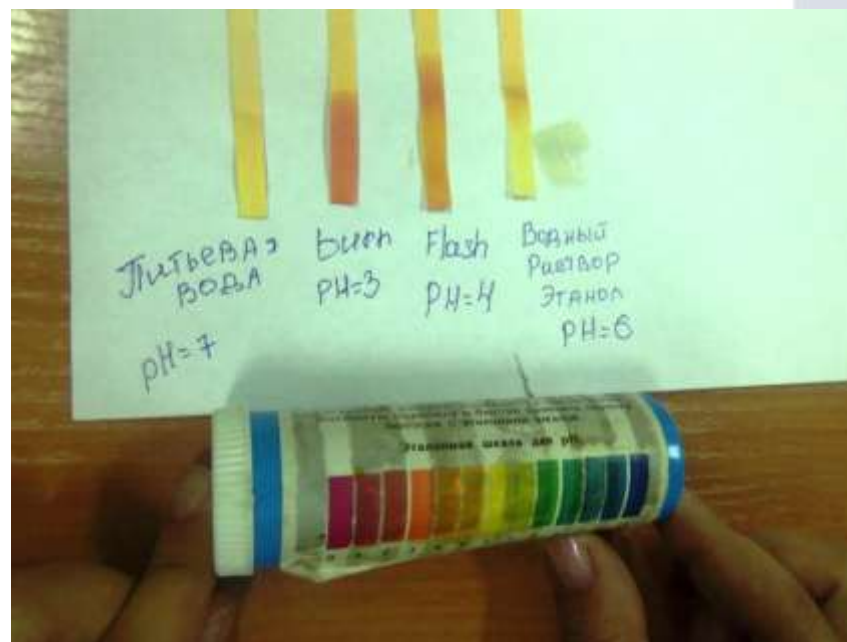 Питьевая
вода
pH=7
Burn
PH=3
Flash
PH=4
Водный
Раствор
Этанол
PH=6
Эталонная шкала для pH